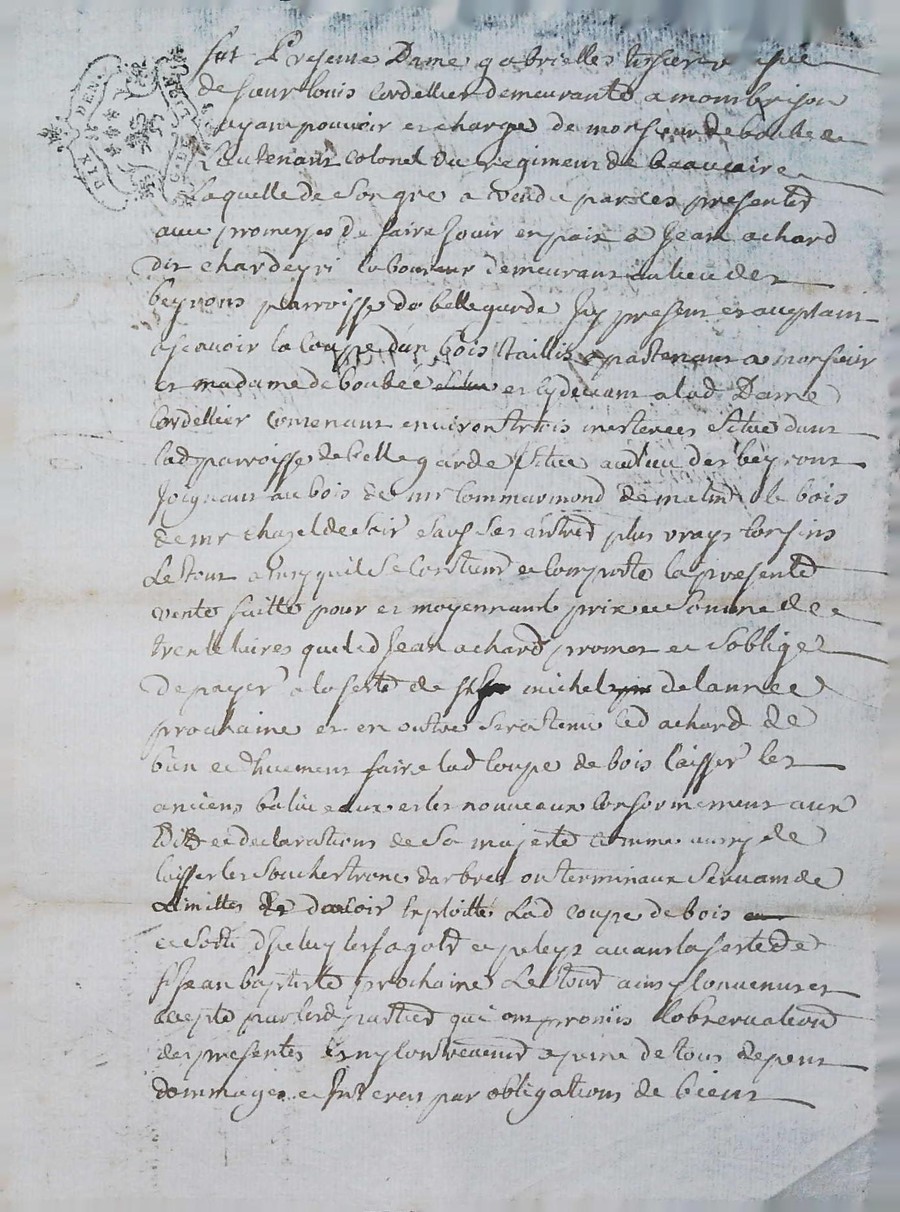 DIX DEN.
fut Presente Dame gabrielles
de sieur louis Cordellier demeurante a montbrison
ayant pouvoir et charge de monsieur de boubee
Lieutenant colonel du regiment de beaucaire
Laquelle de son gre a vendu par ces presented
avec promesses de faire Jouir en paix a Jean achard
dit chardeyri laboureur demeurant au lieu des
beyrons parroisse de bellegarde Icy present et acceptant
ascavoir la Couppe d'un bois taillis apartenant a monsieur
et madame de boubeé et cy devant a lad Dame
Cordellier Contenant environ trois mesterees Situé dans
lad parroisse de belle garde Situé au lieu des beyrons
Joignant au bois de mr Commarmond de matin le bois
de mr chazel de soir Sauf Ses autred plus vrays Confins
Le tout ainsy quil Se Contient et Comporte la presente
vente faitte pour et moyennant le prix et Somme de
trente livres que led Jean achard promet et Soblige
De payer a la feste de St michel de lannee
prochaine et en outre Sera tenu led achard de
bien et duement faire lad Coupe de bois laisser les
anciens baliveaux et les nouveaux Conformement aux
Edits et declarations de Sa majesté Comme aussy de
laisser les Souches troncs darbres ou terminaux Servant de
Limittes davoir Exploitté Lad coupe de bois
et Sorti dIceluy les fagotd et peleys avant la feste de
St Jean baptiste prochaine Le tout ainsy Convenu et
accepté par lesd partied qui ont promis lobservationd
des presentes et ny Contrevenir a peine de tous depens
dommages et Interets par obligations de biens